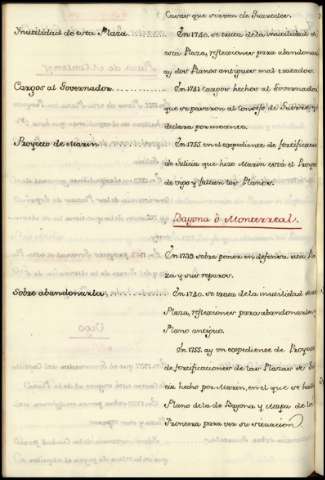 Casas que sirven de Quarteles.
Inutilidad de esta Plaza. En 1740. se trata de la inutilidad de
esta Plaza, reflexiones para abandonarla
ay dos Planos antiguos mal tratados.
Cargos al Governador. En 1751 cargos hechos al Governador
que se pasaron al Consejo de Guerra, y
declara por inocente.
Proyecto de Marin En 1755. en el expediente de fortificacion
de Galicia que hizo Marin está el Proyecto
de esta y faltan los Planos.
Bayona ô Monterreal.
En 1738. sobre poner en defensa esta Pla
za y sus reparos.
Sobre abandonarla. En 1740. se trata de la inutilidad de esta
Plaza, reflexiones para abandonarla, y
Plano antiguo.
En 1755. ay un expediente de Proyectos
de fortificaciones de las Plazas de Gali
cia hecho por Marin, en el que se halla
Plano de la de Bayona y Mapa de la
frontera para ver su situacion